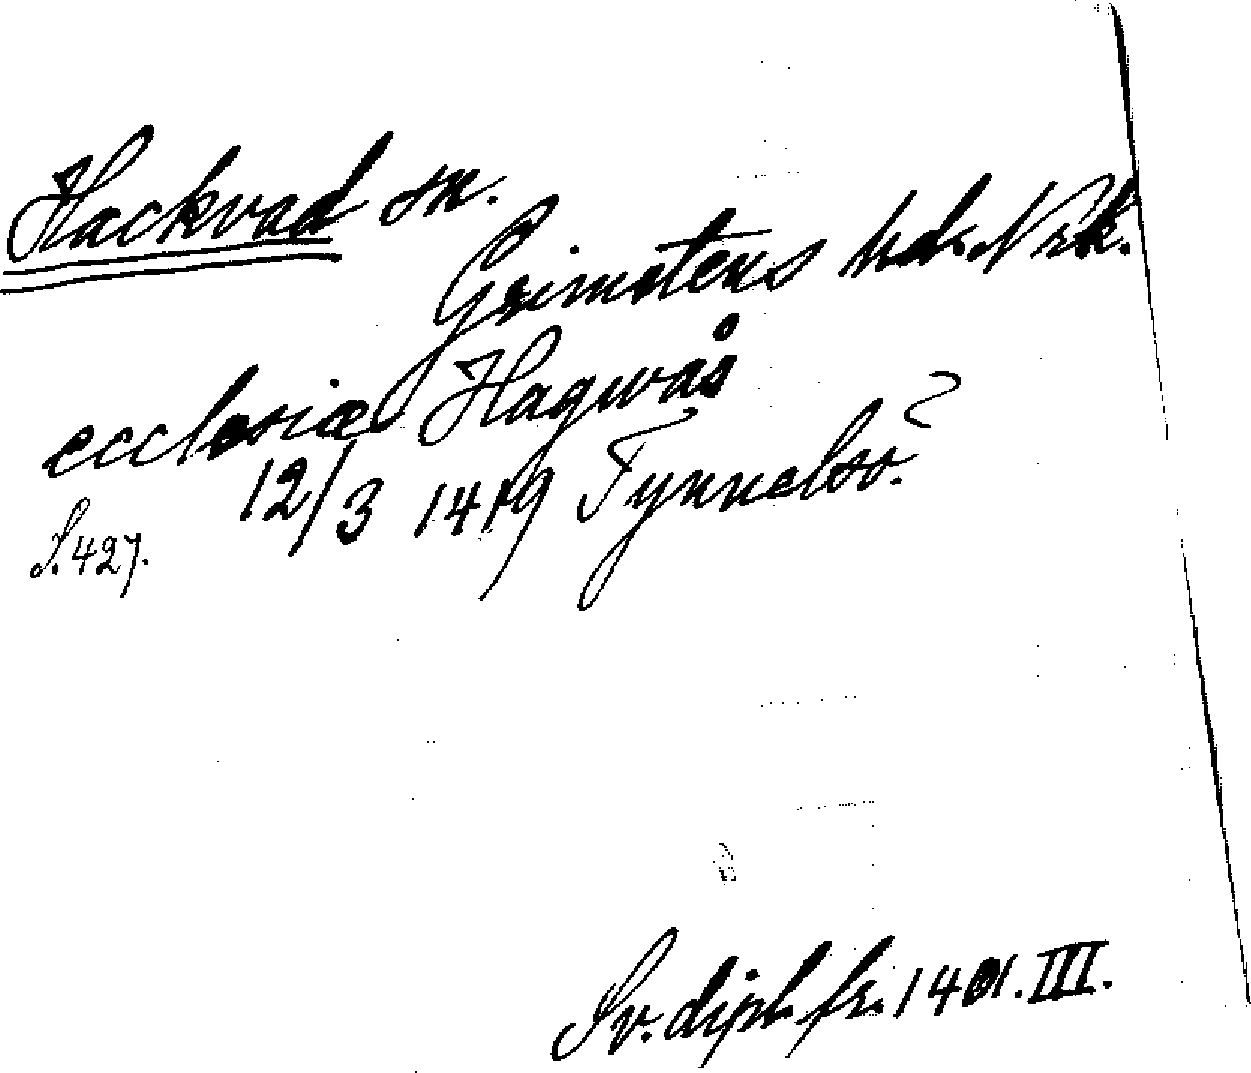 Hackvad sn.
Grimstens hd. Nrk.
ecclesiæ Hagwås
12/3 1419 Tynnelsö?
S. 427.
Sv. dipl. fr. 1401. III.